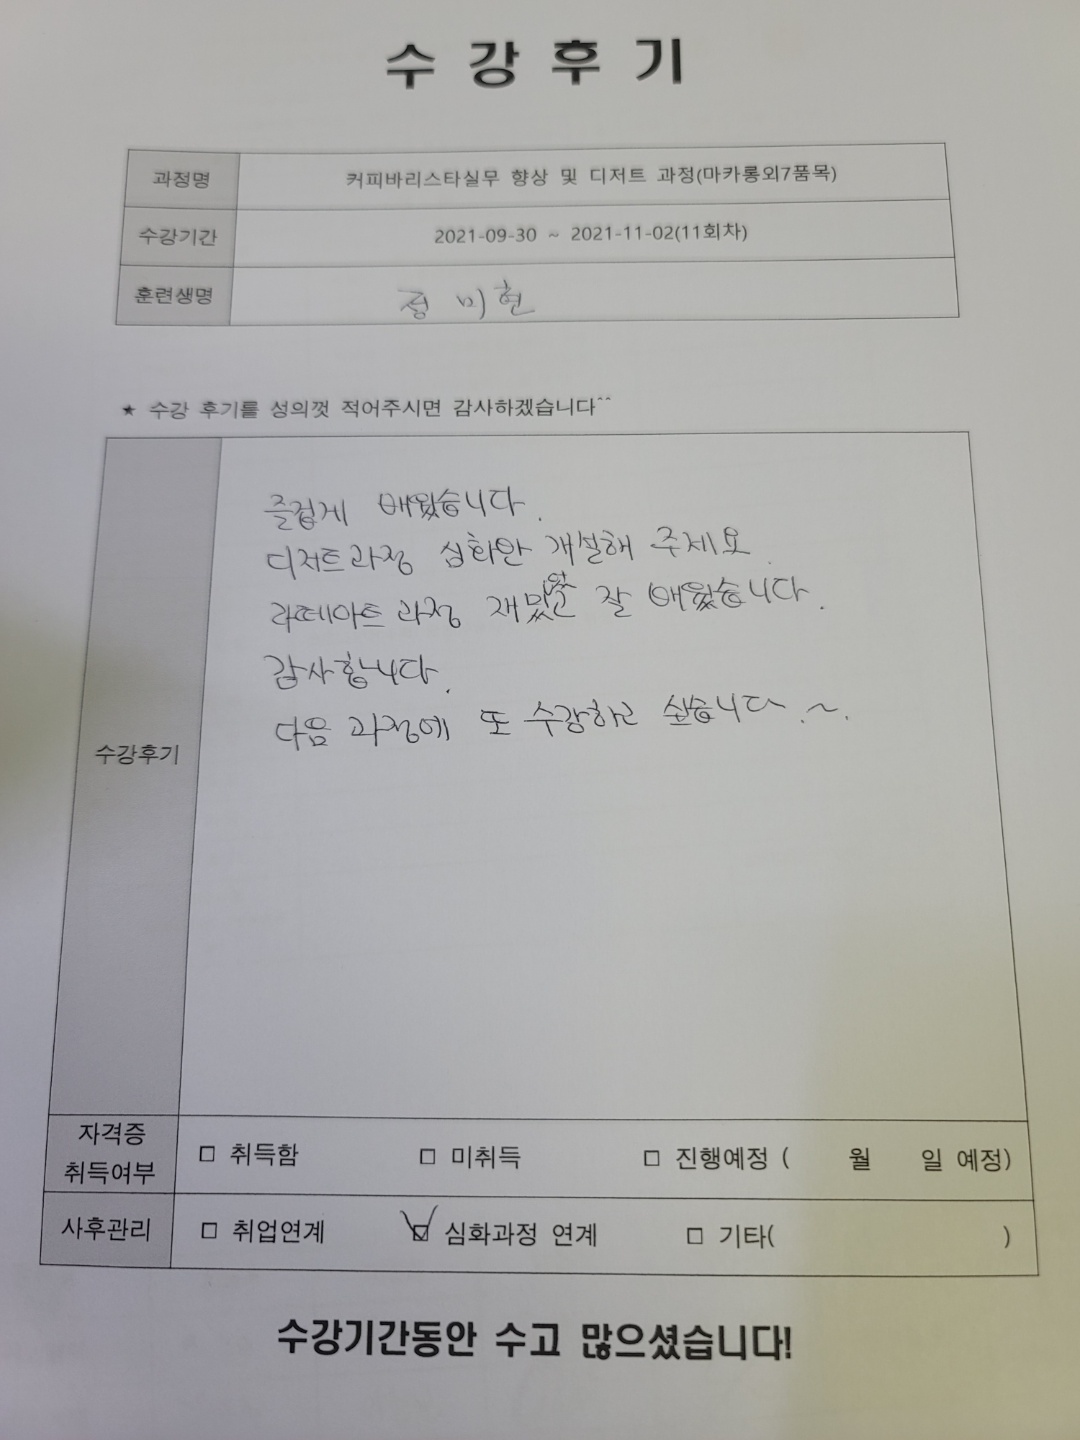 수 강 후 기
과정명 커피바리스타실무 향상 및 디저트 과정(마카롱외7품목)
수강기간 2021-09-30 ~ 2021-11-02(11회차)
훈련생명 정 미 현
★ 수강 후기를 성의껏 적어주시면 감사하겠습니다^^
즐겁게 배웠습니다.
디저트과정 심화반 개설해 주세요
라떼아트 과정 재밌고 잘 배웠습니다.
감사합니다.
다음 과정에 또 수강하고 싶습니다.~.
수강후기
자격증 취득여부 □ 취득함 □ 미취득 □ 진행예정 ( 월 일 예정)
사후관리 □ 취업연계 ☑ 심화과정 연계 □ 기타( )
수강기간동안 수고 많으셨습니다!